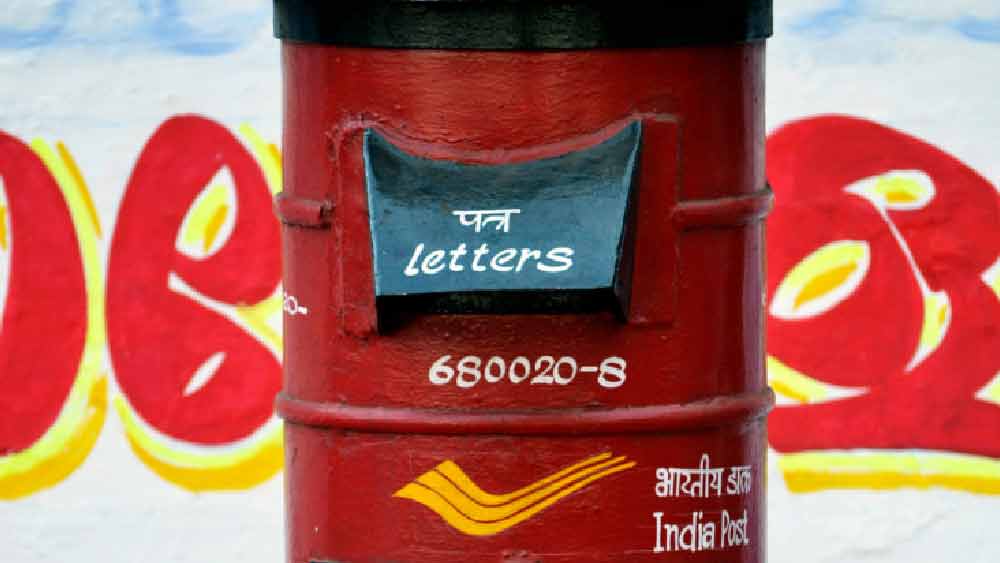 पत्र
letters
680020-8
भारतीय डाक
India Post